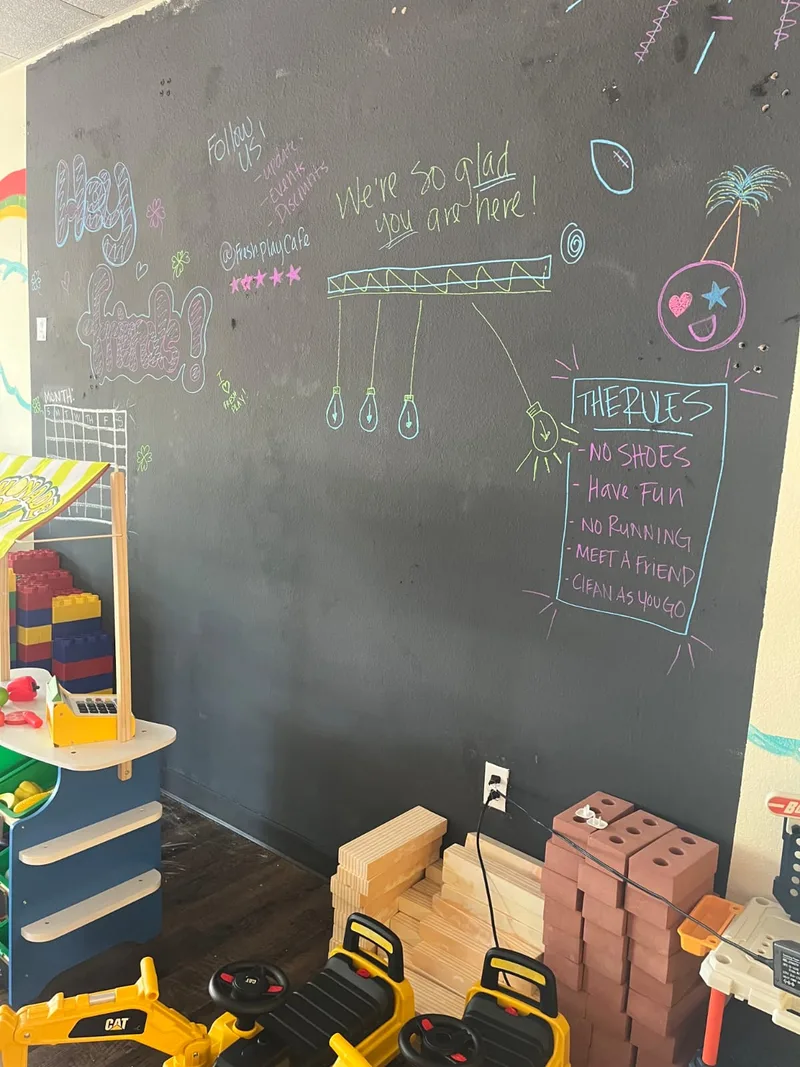 Hey
friends!
Follow
US!
-update
-Events
-Discounts
@FreshPlayCafe
We're So glad
you are here!
I
FRESH
PLAY!
MONTH:
S M T W T F S
THE RULES
-NO SHOES
- Have Fun
- NO RUNNING
- MEET A FRIEND
- CLEAN AS YOU GO
CAT
CAT